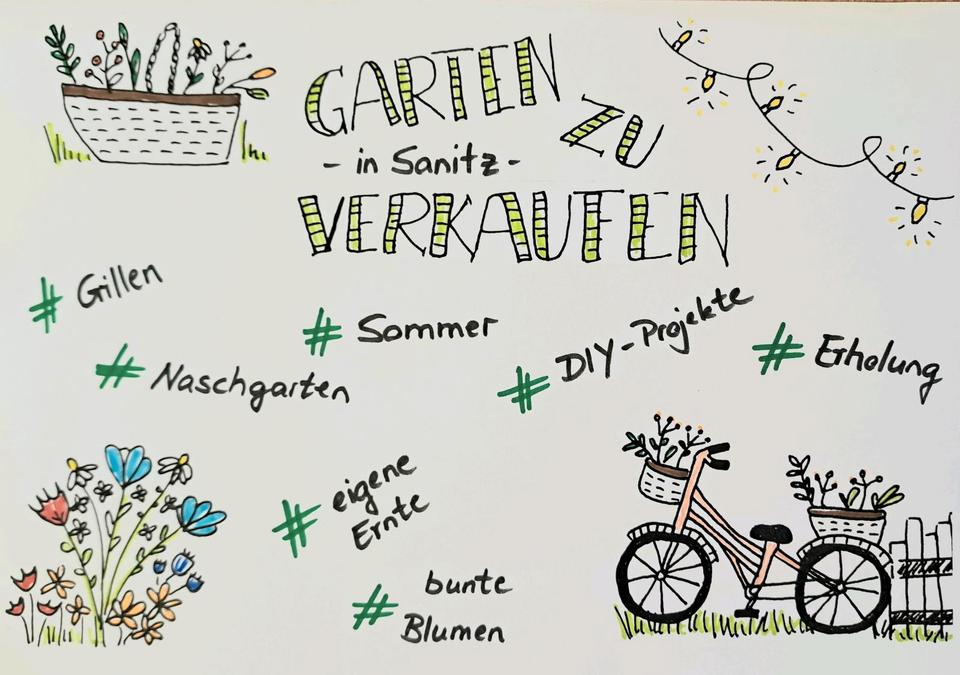 GARTEN
ZU
- in Sanitz -
VERKAUFEN
# Gillen
# Sommer
# DIY-Projekte
# Erholung
# Naschgarten
# eigene
Ernte
# bunte
Blumen